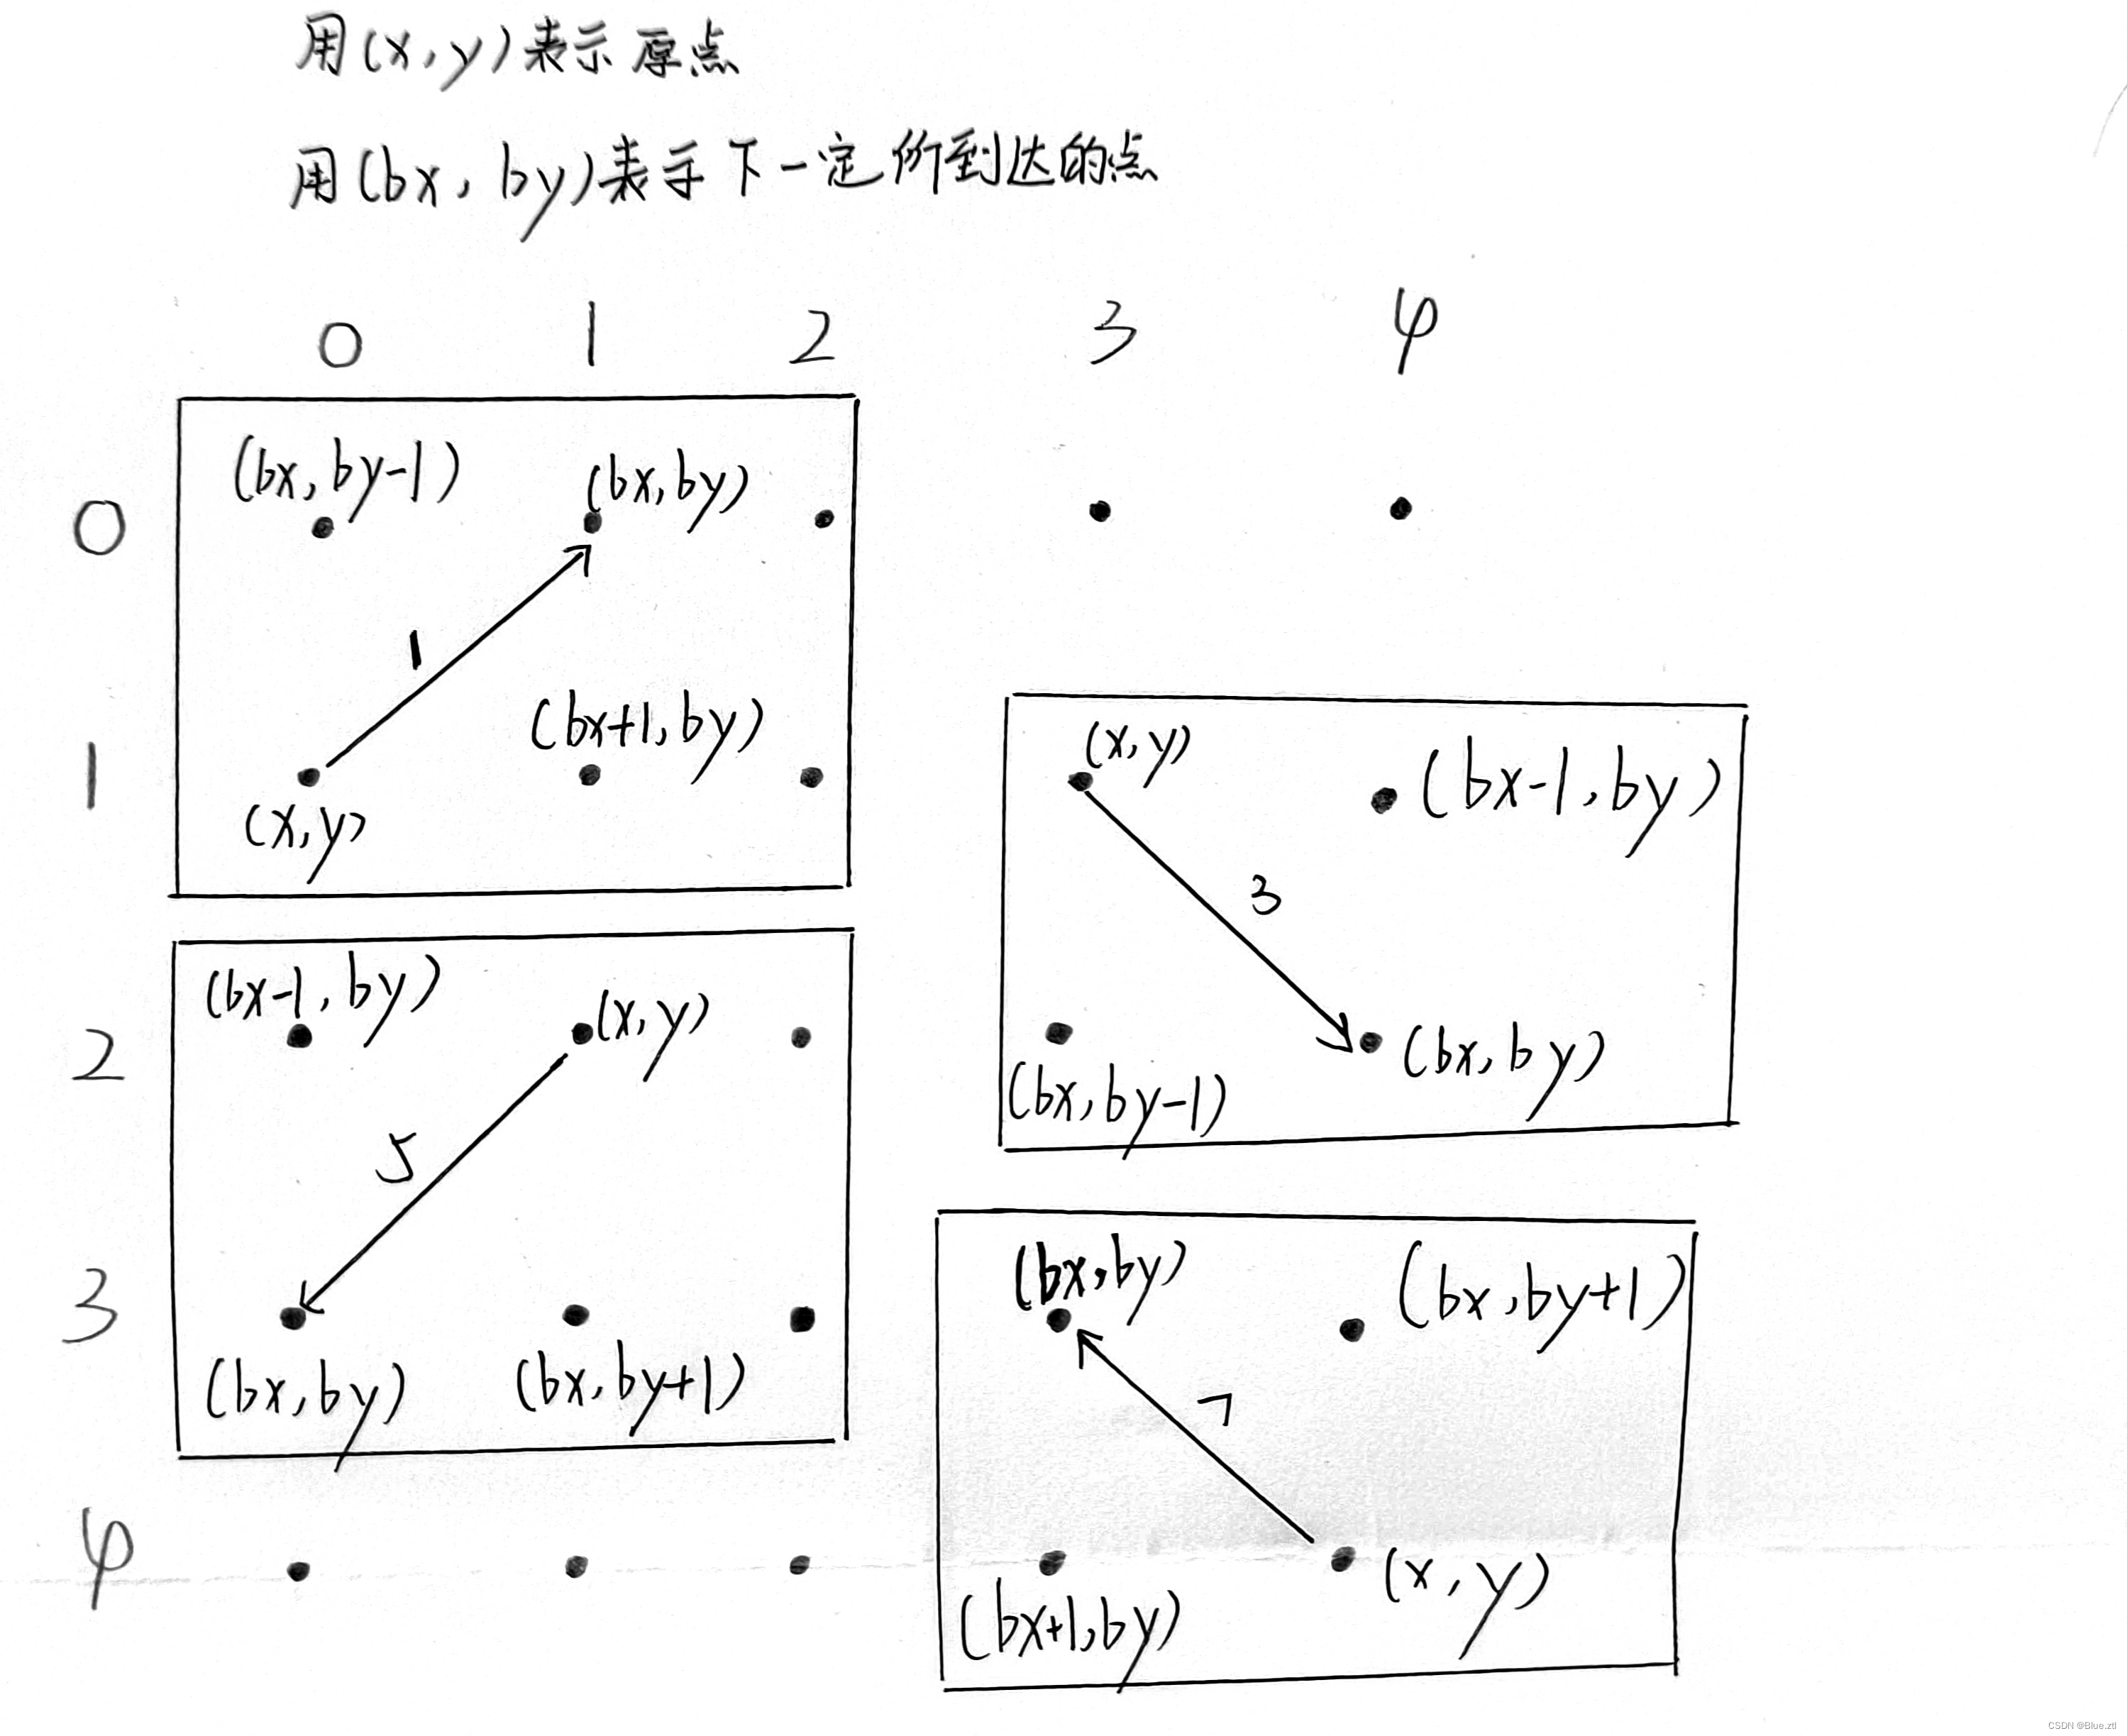 用(x,y)表示原点
用(bx,by)表示下一定价到达的点
0 1 2 3 4
0
(bx,by-1) (bx,by)
1
(bx+1,by)
1
(x,y)
(x,y)
(bx-1,by)
3
(bx,by)
(bx,by-1)
2
(bx-1,by) (x,y)
5
3
(bx,by) (bx,by+1)
(bx,by) (bx,by+1)
7
4
(x,y)
(bx+1,by)
CSDN @Blue.ztl